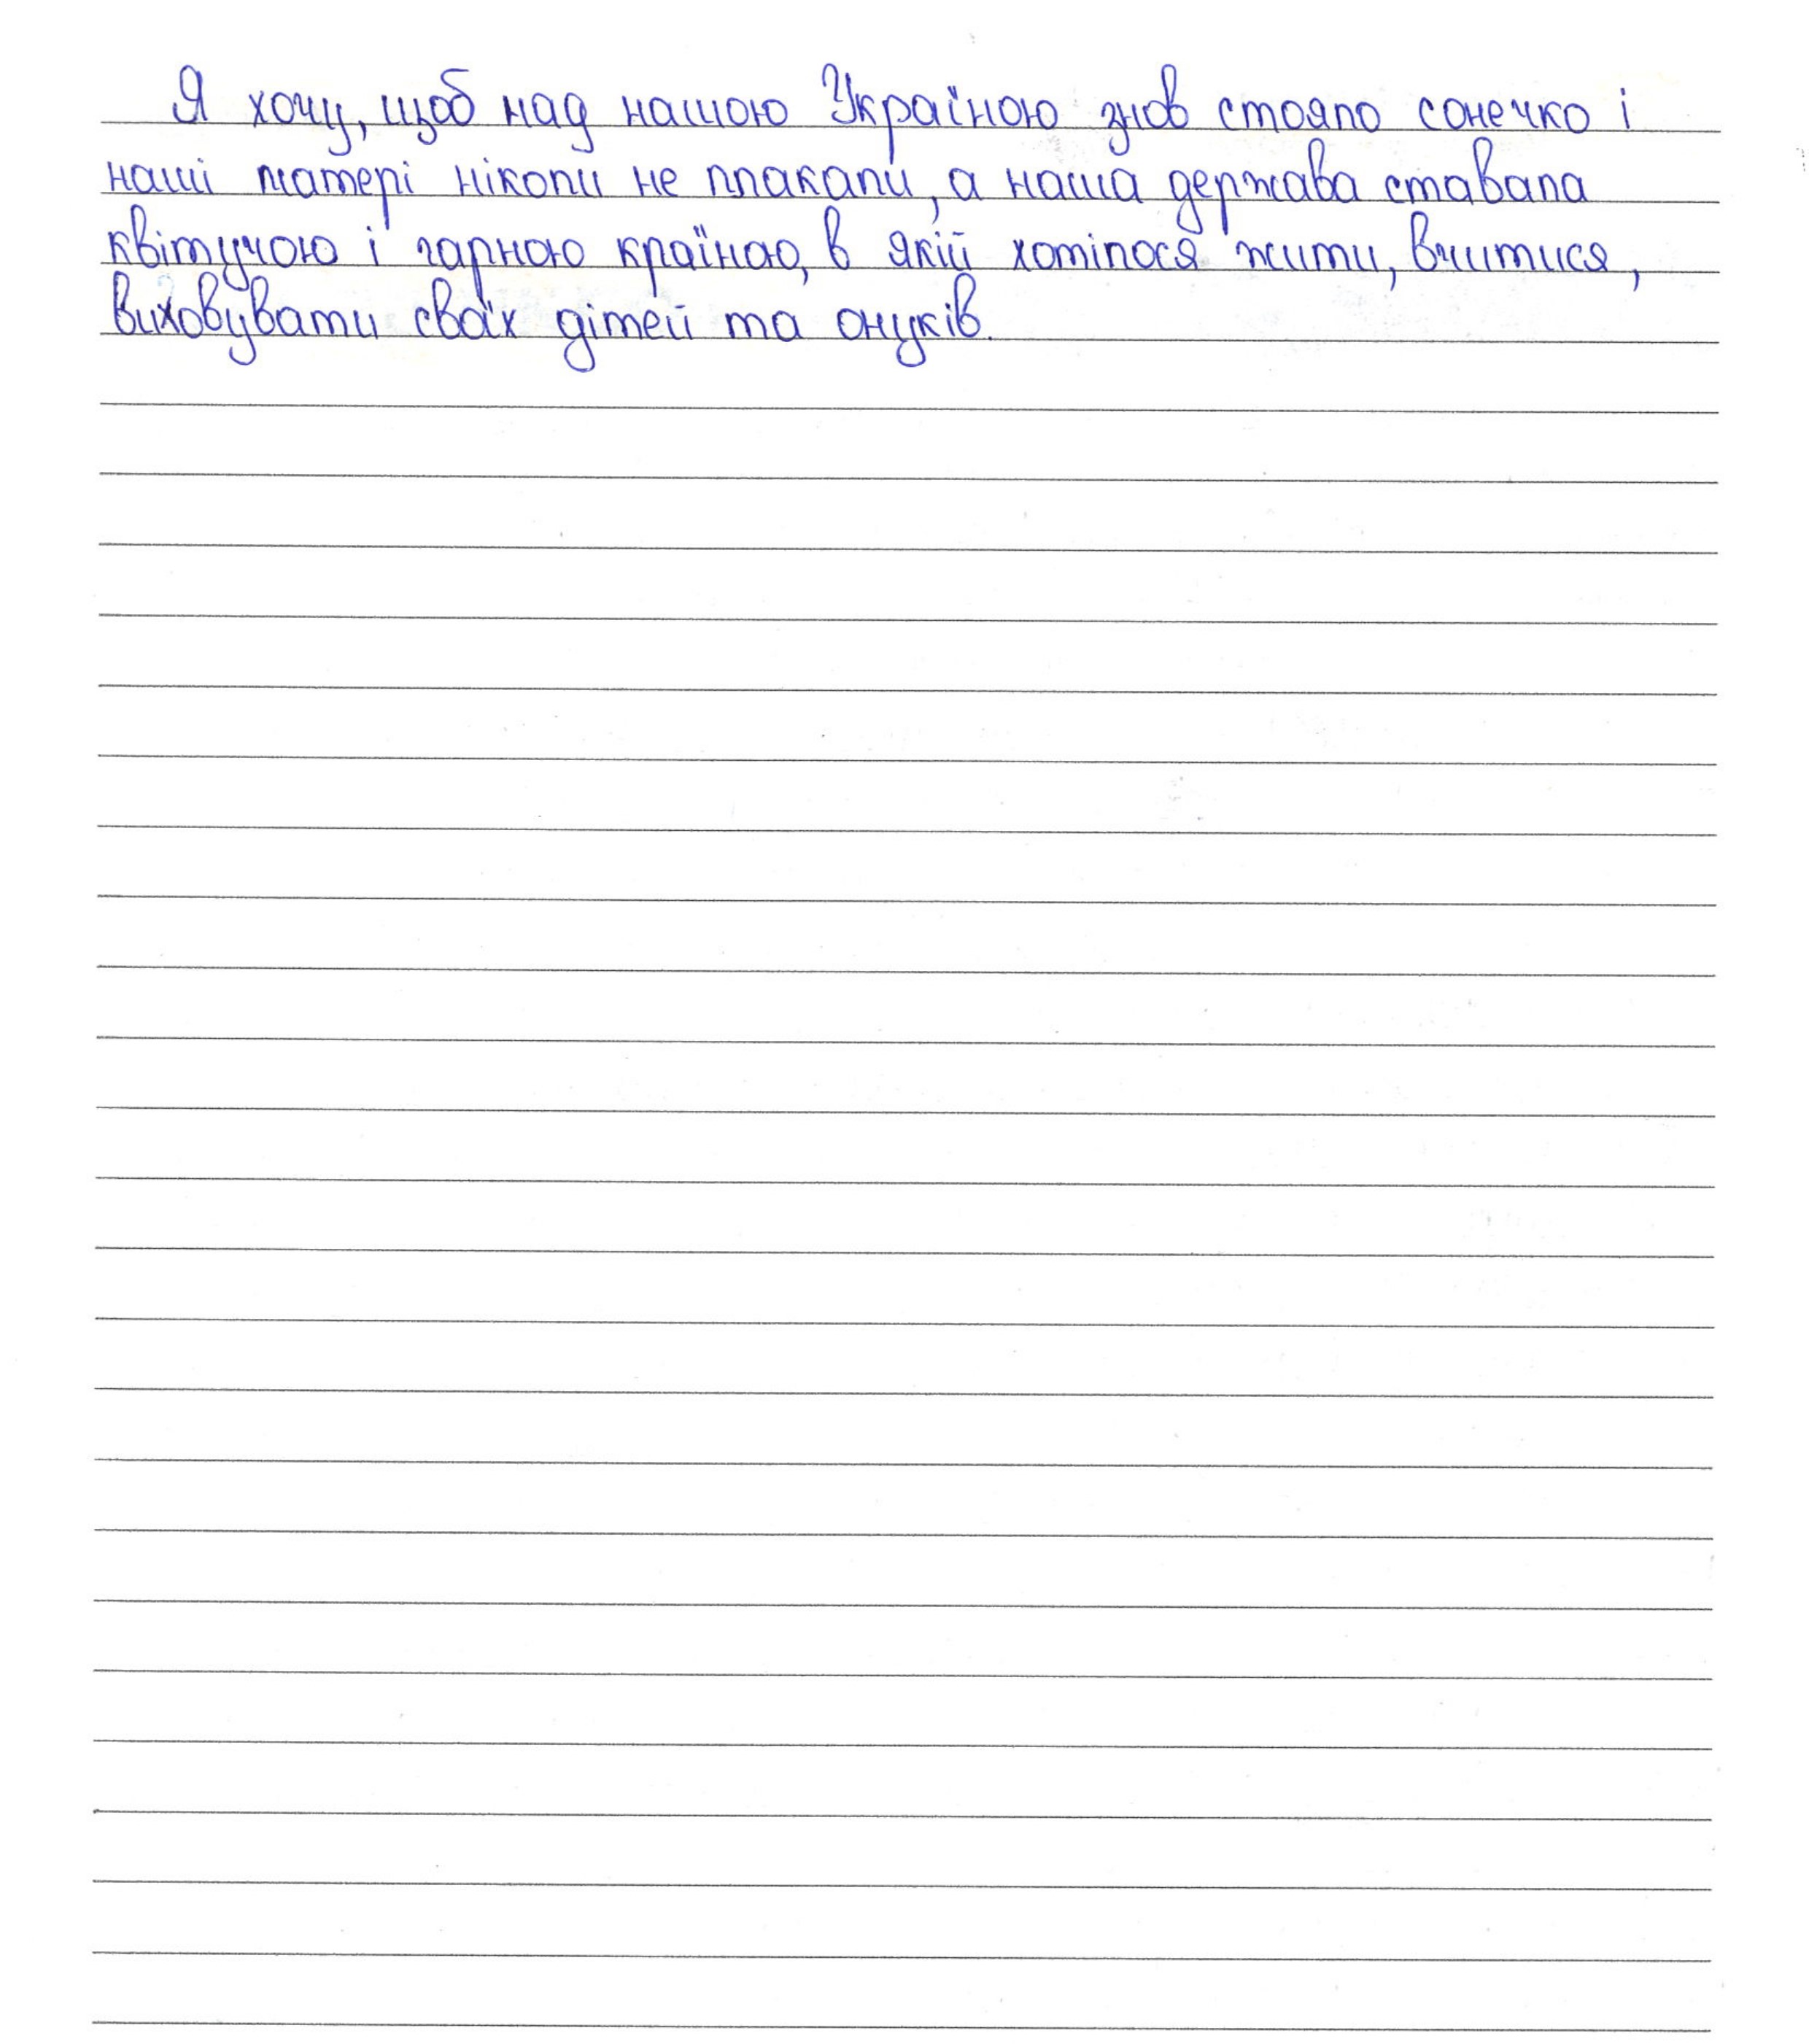 Я хочу, щоб над нашою Україною знов стояло сонечко і
наші матері ніколи не плакали, а наша держава ставала
квітучою і гарною країною, в якій хотілося жити, вчитися,
виховувати своїх дітей та онуків.